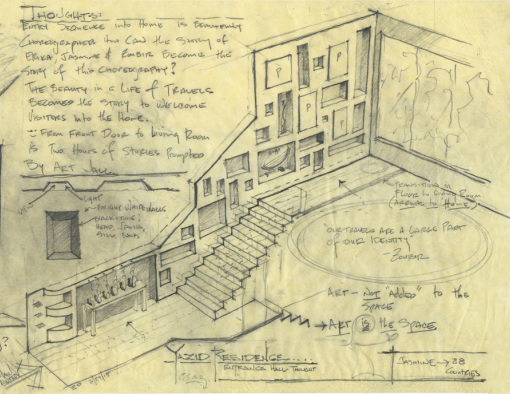 THOUGHTS:
ENTRY SEQUENCE INTO HOME IS BEAUTIFULLY
CHOREOGRAPHED HOW CAN THE STORY OF
JASMINE & ZOUBIR BECOME THE
STORY OF THIS CHOREOGRAPHY?
THE BEAUTY IN A LIFE OF TRAVELS
BECOMES THE STORY TO WELCOME
VISITORS INTO THE HOME.
FROM FRONT DOOR TO LIVING ROOM
IS TWO HOURS OF STORIES PROMPTED
BY ART
LIGHT
VIEW
WHITE WALLS
P
P
P
P
P
TRANSITION IN
FLOOR TO LIVING ROOM
(ARRIVAL TO HOME)
"OUR TRAVELS ARE A LARGE PART
OF OUR IDENTITY"
- ZOUBIR
ART - NOT "ADDED" TO THE
SPACE
→ ART IS THE SPACE
YAZID RESIDENCE....
ENTRANCE HALL
JASMINE → 28
COUNTRIES